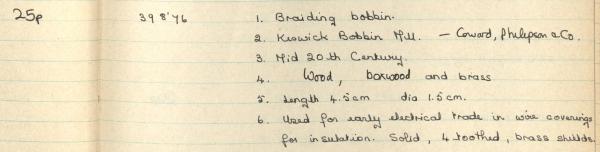 25p 39 8'76 1. Braiding bobbin.
2. Keswick Bobbin Mill. — Coward, Philipson & Co.
3. Mid 20th Century.
4. Wood, boxwood and brass
5. Length 4.5cm dia 1.5cm.
6. Used for early electrical trade in wire coverings
for insulation. Solid, 4 toothed, brass shields.